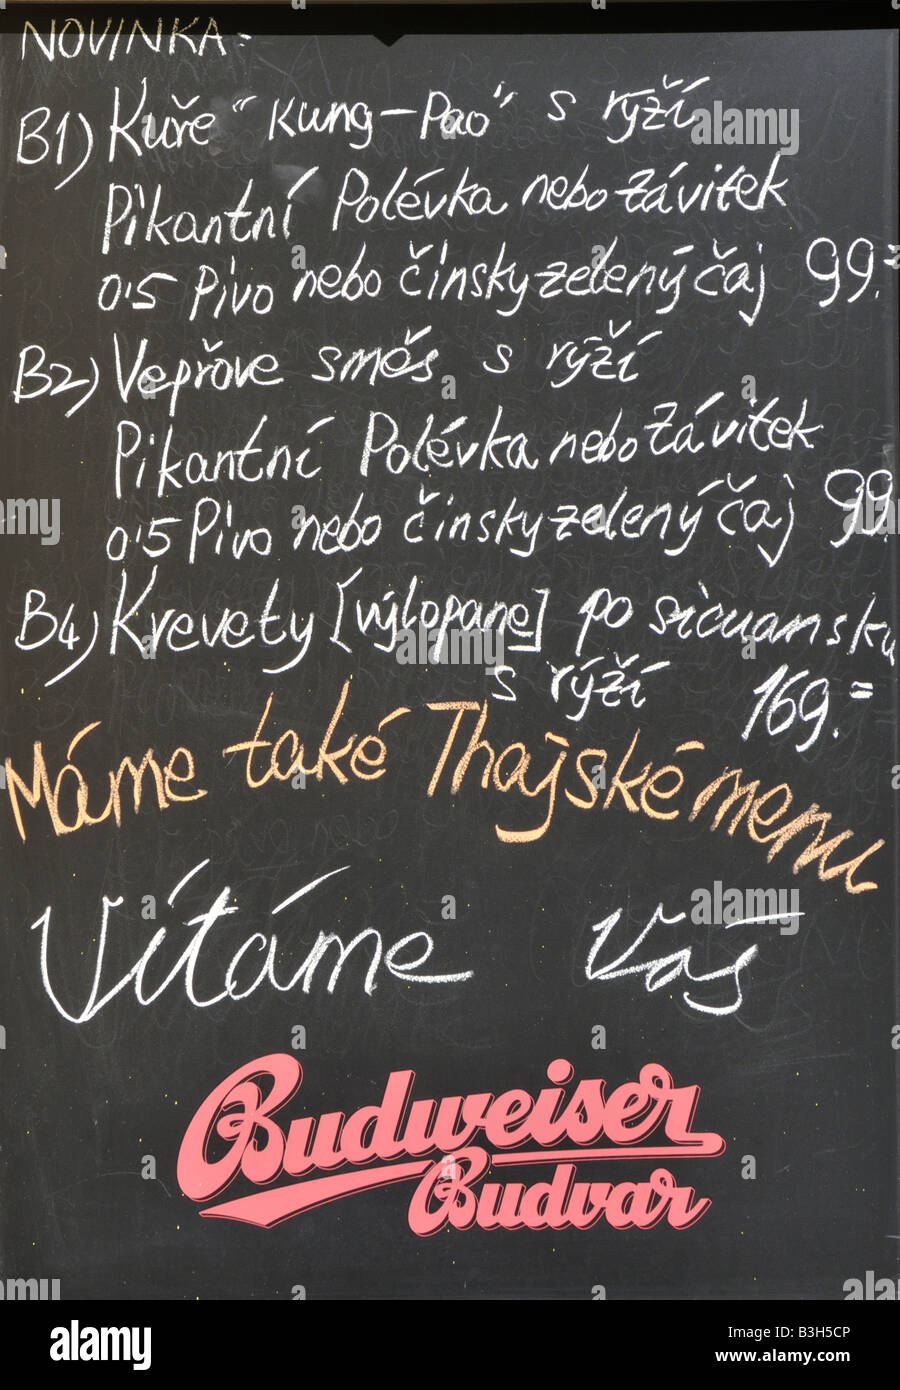 NOVINKA:
B1) Kuře "Kung-Pao" s rýží
Pikantní Polévka nebo závitek
0'5 Pivo nebo čínsky zelený čaj 99.=
B2) Vepřove směs s rýží
Pikantní Polévka nebo závitek
0'5 Pivo nebo čínsky zelený čaj 99
B4) Krevety [výlopane] po sicuansku
s rýží 169.=
Máme také Thajské menu
Vítáme Vás
Budweiser
Budvar
alamy
Image ID: B3H5CP
www.alamy.com